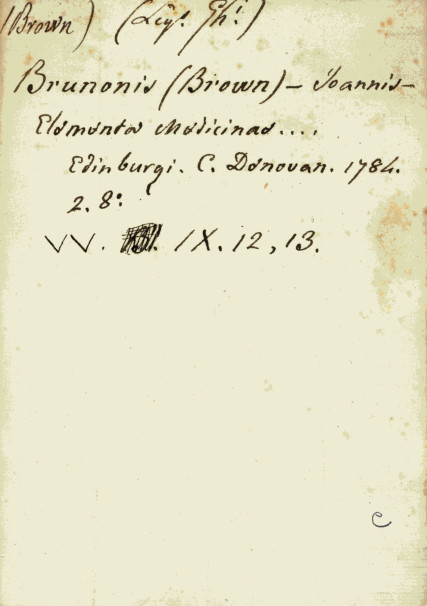 (Brown) (Leg. Ghi.)
Brunonis (Brown) – Joannis –
Elementa Medicinae....
Edinburgi. C. Denovan. 1784.
2. 8.°
VV. IX. 12, 13.
c